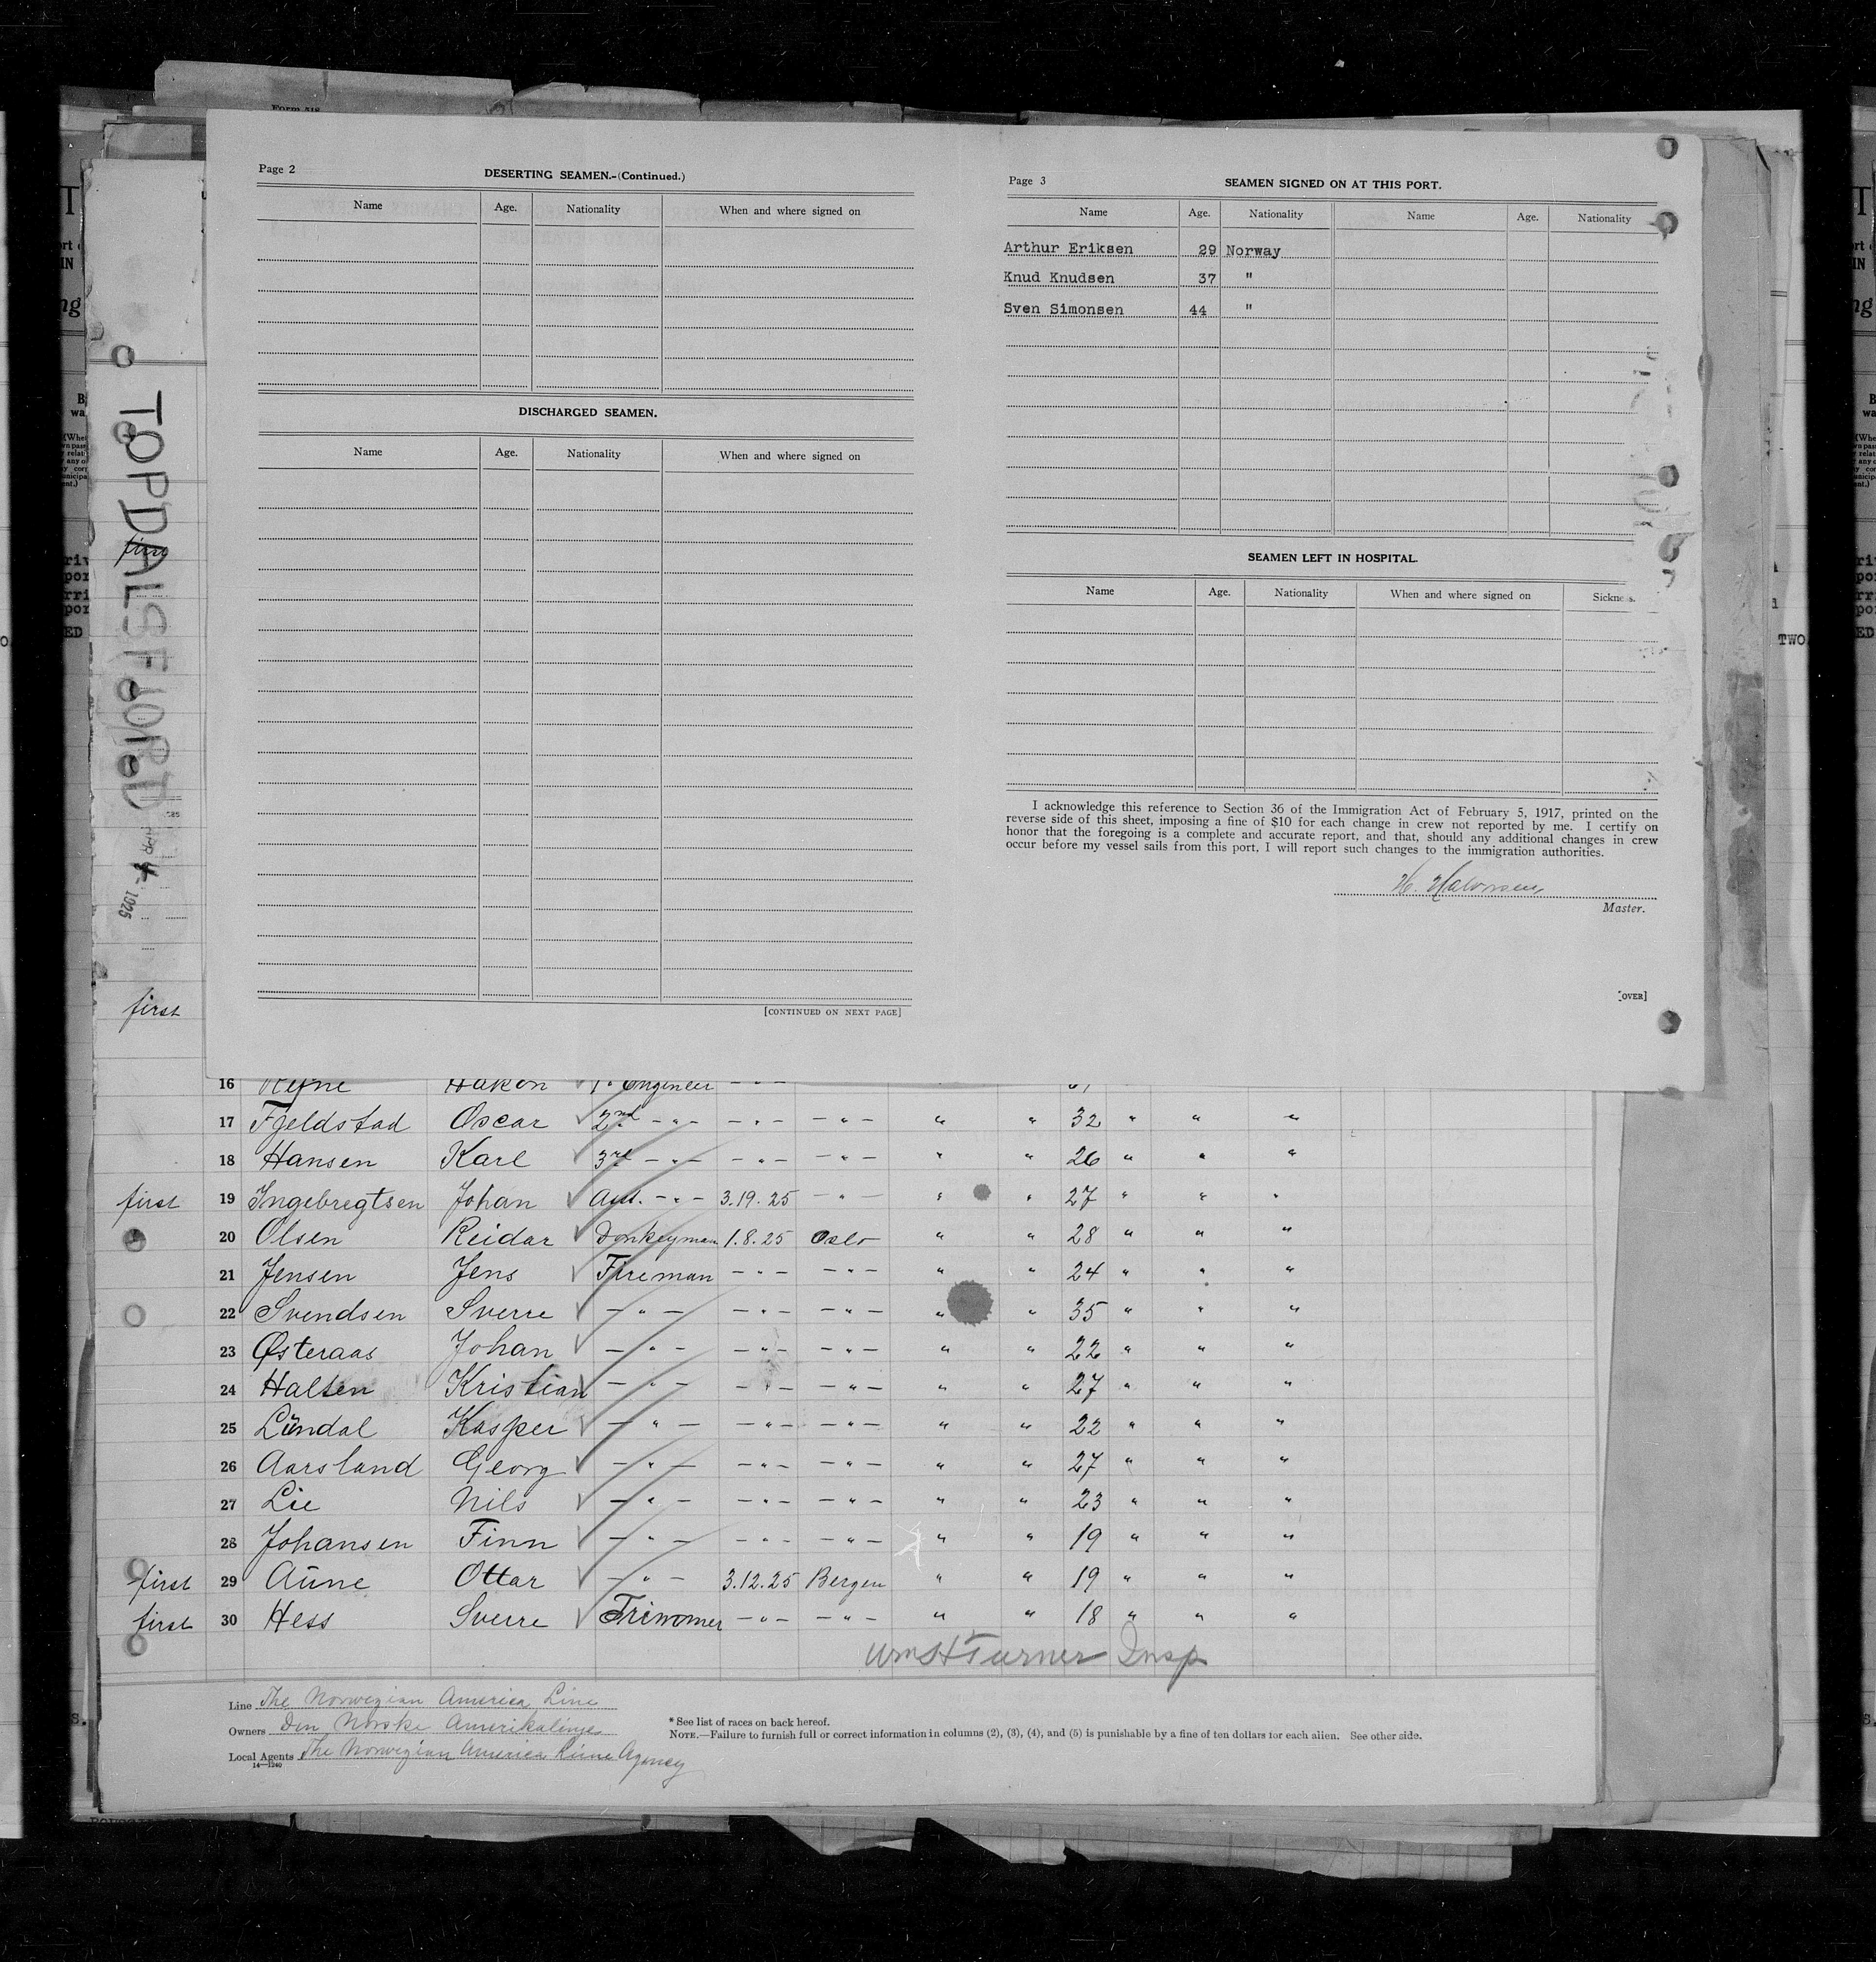 Form 318
Page 2
DESERTING SEAMEN.-(Continued.)
Name Age. Nationality When and where signed on
DISCHARGED SEAMEN.
Name Age. Nationality When and where signed on
[CONTINUED ON NEXT PAGE]
Page 3
SEAMEN SIGNED ON AT THIS PORT.
Name Age. Nationality Name Age. Nationality
Arthur Eriksen 29 Norway
Knud Knudsen 37 "
Sven Simonsen 44 "
SEAMEN LEFT IN HOSPITAL.
Name Age. Nationality When and where signed on Sickness.
I acknowledge this reference to Section 36 of the Immigration Act of February 5, 1917, printed on the
reverse side of this sheet, imposing a fine of $10 for each change in crew not reported by me. I certify on
honor that the foregoing is a complete and accurate report, and that, should any additional changes in crew
occur before my vessel sails from this port, I will report such changes to the immigration authorities.
H. Halvorsen
Master.
[OVER]
TOPDALSFJORD
first
1925
first
16 Hakon 1st Engineer - " -
17 Fjeldstad Oscar 2nd - " - - " - - " - " " 32 " " "
18 Hansen Karl 3rd - " - - " - - " - " " 26 " " "
first 19 Ingebregtsen Johan Ast. - " - 3.19.25 - " - " " 27 " " "
20 Olsen Reidar Donkeyman 1.8.25 Oslo " " 28 " " "
21 Jensen Jens Fireman - " - - " - " " 24 " " "
22 Svendsen Sverre - " - - " - - " - " " 35 " " "
23 Østeraas Johan - " - - " - - " - " " 22 " " "
24 Halsen Kristian - " - - " - - " - " " 27 " " "
25 Lindal Kasper - " - - " - - " - " " 22 " " "
26 Aarsland Georg - " - - " - - " - " " 27 " " "
27 Lie Nils - " - - " - - " - " " 23 " " "
28 Johansen Finn - " - - " - - " - " " 19 " " "
first 29 Aune Ottar - " - 3.12.25 Bergen " " 19 " " "
first 30 Hess Sverre Trimmer - " - - " - " " 18 " " "
Wm H Turner Insp
Line The Norwegian America Line
Owners Den Norske Amerikalinje
Local Agents The Norwegian America Line Agency
14-1240
* See list of races on back hereof.
NOTE.—Failure to furnish full or correct information in columns (2), (3), (4), and (5) is punishable by a fine of ten dollars for each alien. See other side.
TWO